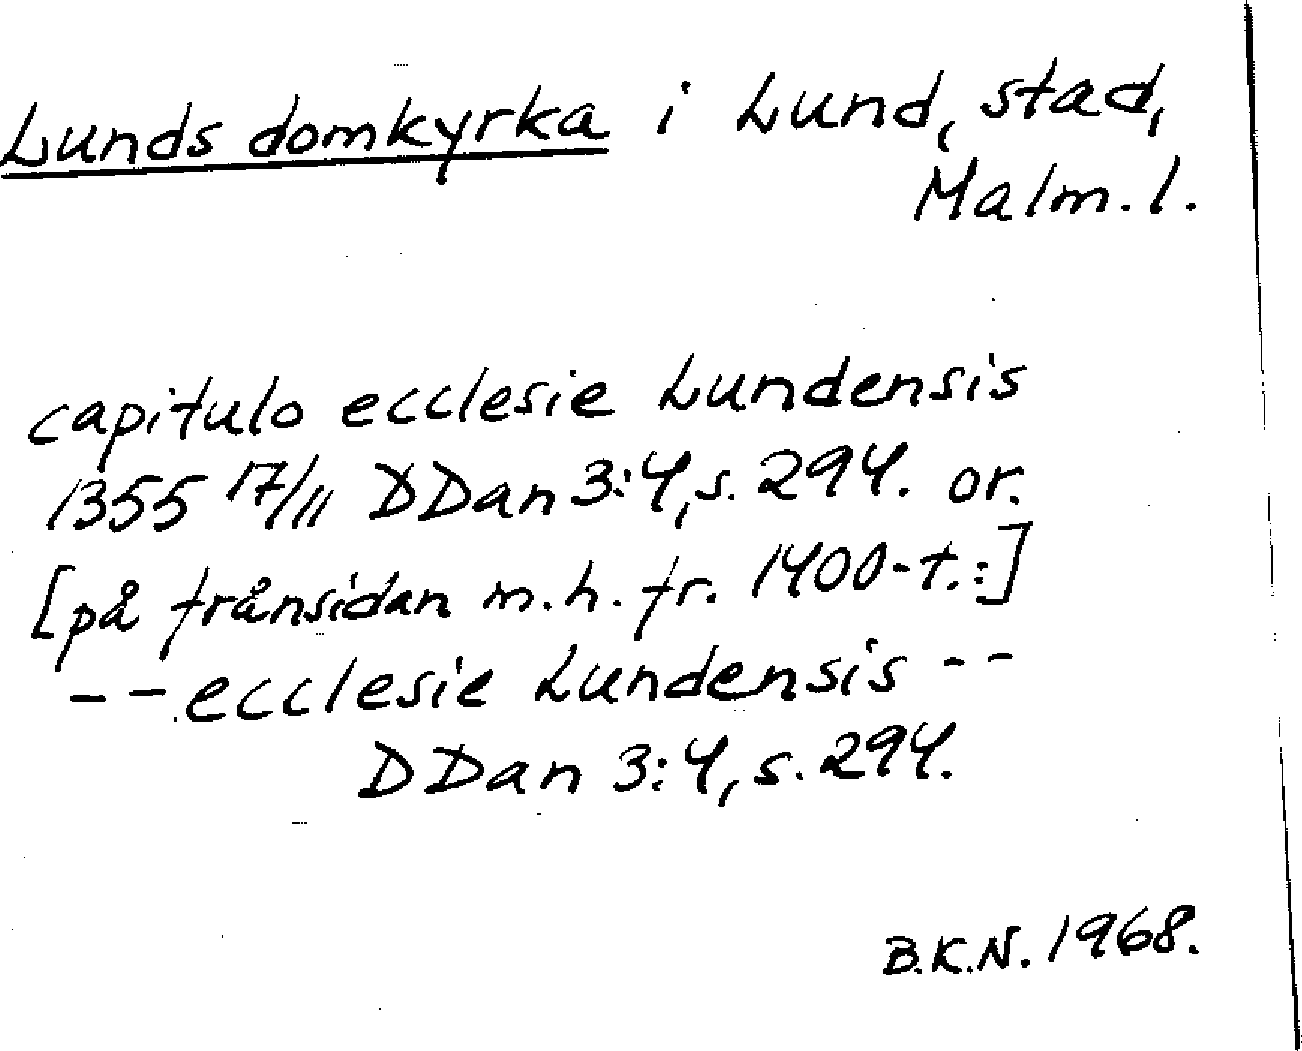 Lunds domkyrka i Lund, stad,
Malm. l.
capitulo ecclesie Lundensis
1355 17/11 DDan 3:4, s. 294. or.
[på frånsidan m.h. fr. 1400-t.:]
-- ecclesie Lundensis --
DDan 3:4, s. 294.
B.K.N. 1968.